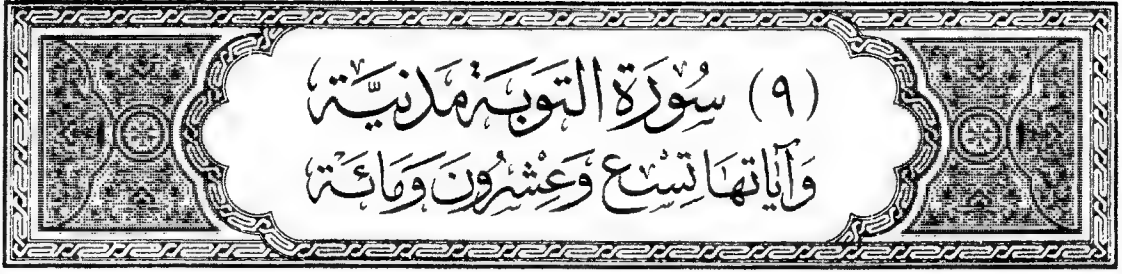 (٩) سُورَةُ التَّوبَة مَدَنِيَّة
وَآيَاتهَا تِسْع وَعِشْرُونَ وَمَائَة